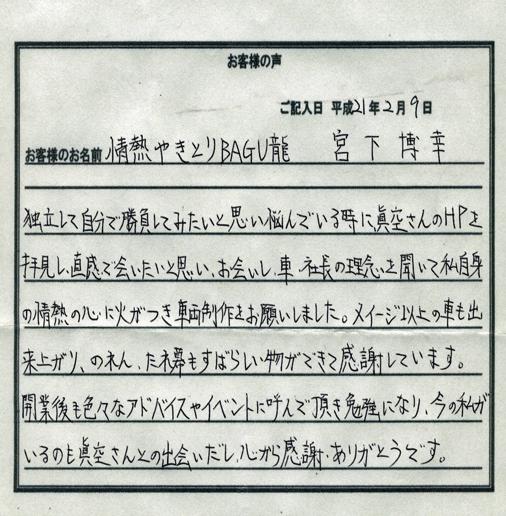 お客様の声
ご記入日 平成21年2月9日
お客様のお名前 情熱やきとりBAGU龍 宮下博幸
独立して自分で勝負してみたいと思い悩んでいる時に、眞空さんのHPを
拝見し、直感で会いたいと思い、お会いし、車、社長の理念を聞いて私自身
の情熱の心に火がつき車両制作をお願いしました。メイージ以上の車も出
来上がり、のれん、たれ幕もすばらしい物ができて感謝しています。
開業後も色々なアドバイスやイベントに呼んで頂き勉強になり、今の私が
いるのも眞空さんとの出会いだし、心から感謝・ありがとうです。